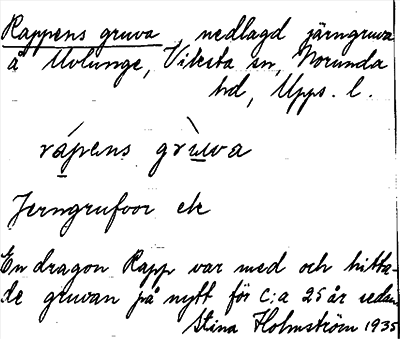 Rappens gruva, nedlagd järngruva
å Ulunge, Viksta sn, Norunda
hd, Upps. l.
rápens grùva
Jerngrufvor etc
En dragon Rapp var med och hitta-
de gruvan på nytt för c:a 25 år sedan
Stina Holmström 1935